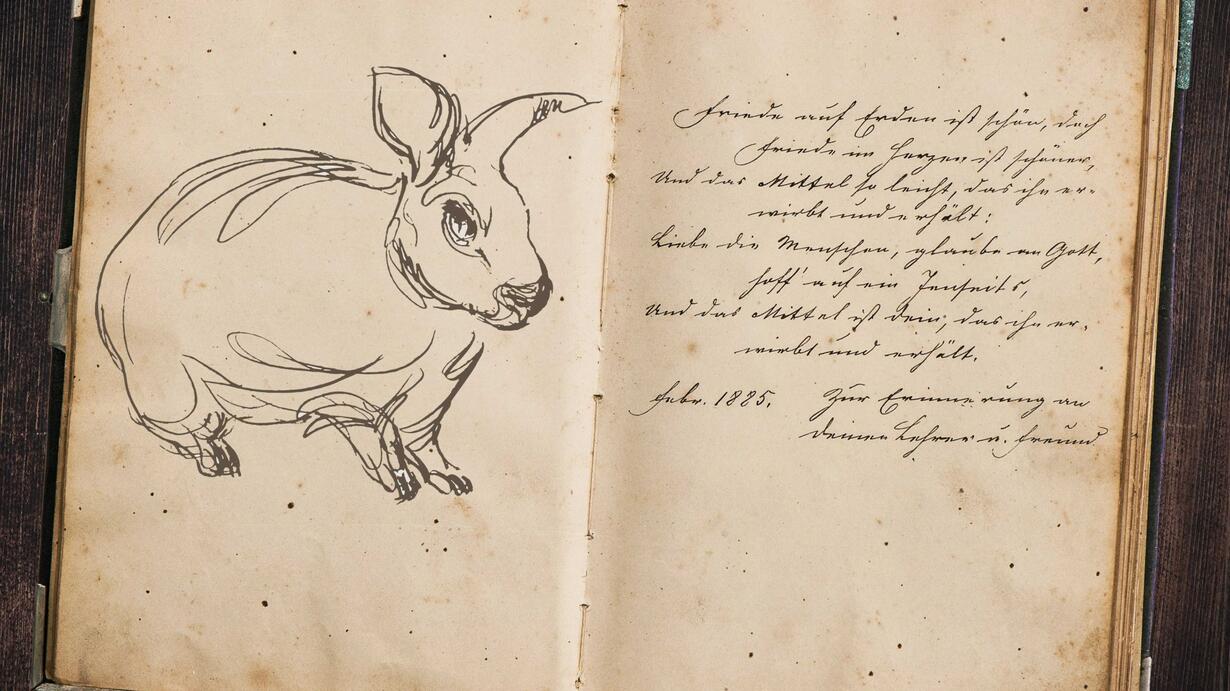 Friede auf Erden ist schön, doch
Friede im Herzen ist schöner,
Und das Mittel so leicht, das ihn er-
wirbt und erhält:
Liebe die Menschen, glaube an Gott,
hoff' auf ein Jenseits,
Und das Mittel ist dein, das ihn er-
wirbt und erhält.
Febr. 1885. Zur Erinnerung an
deinen Lehrer u. Freund